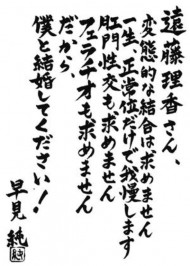 遠藤理香さん、
変態的な結合は求めません
一生、正常位だけで我慢します
肛門性交も求めません
フェラチオも求めません
だから、
僕と結婚してください!
早見 純